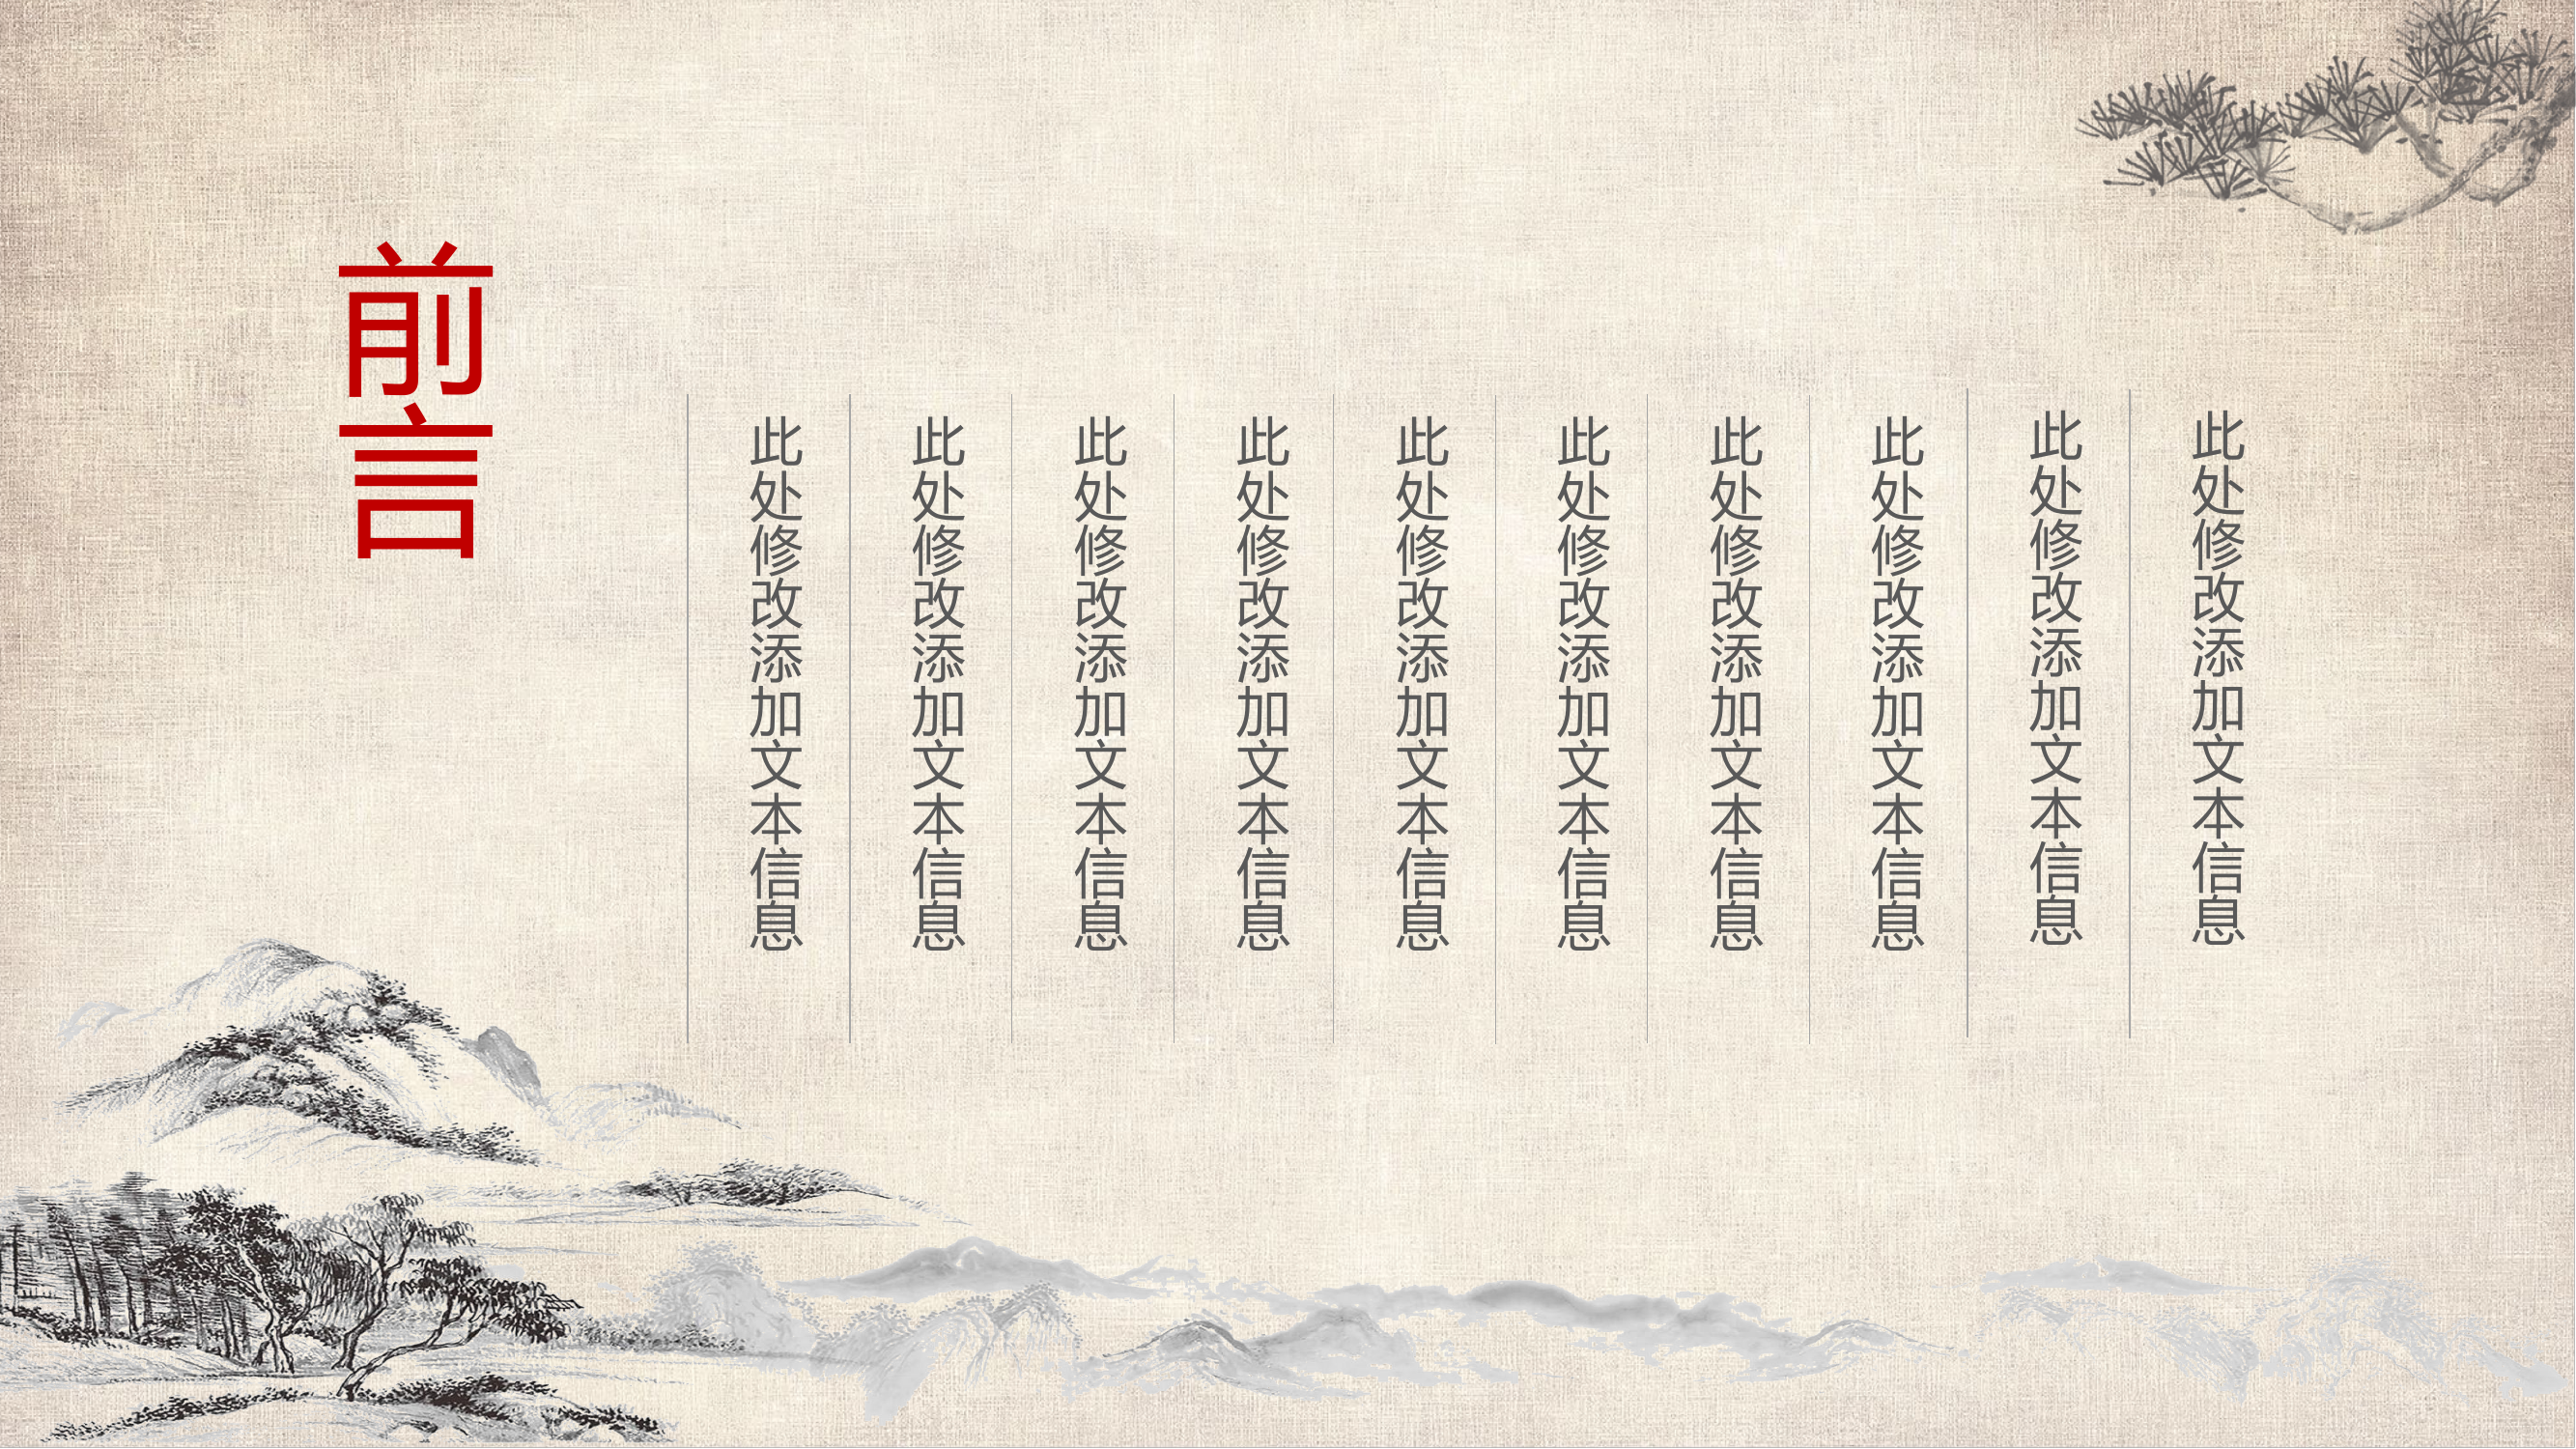 前言
此处修改添加文本信息
此处修改添加文本信息
此处修改添加文本信息
此处修改添加文本信息
此处修改添加文本信息
此处修改添加文本信息
此处修改添加文本信息
此处修改添加文本信息
此处修改添加文本信息
此处修改添加文本信息